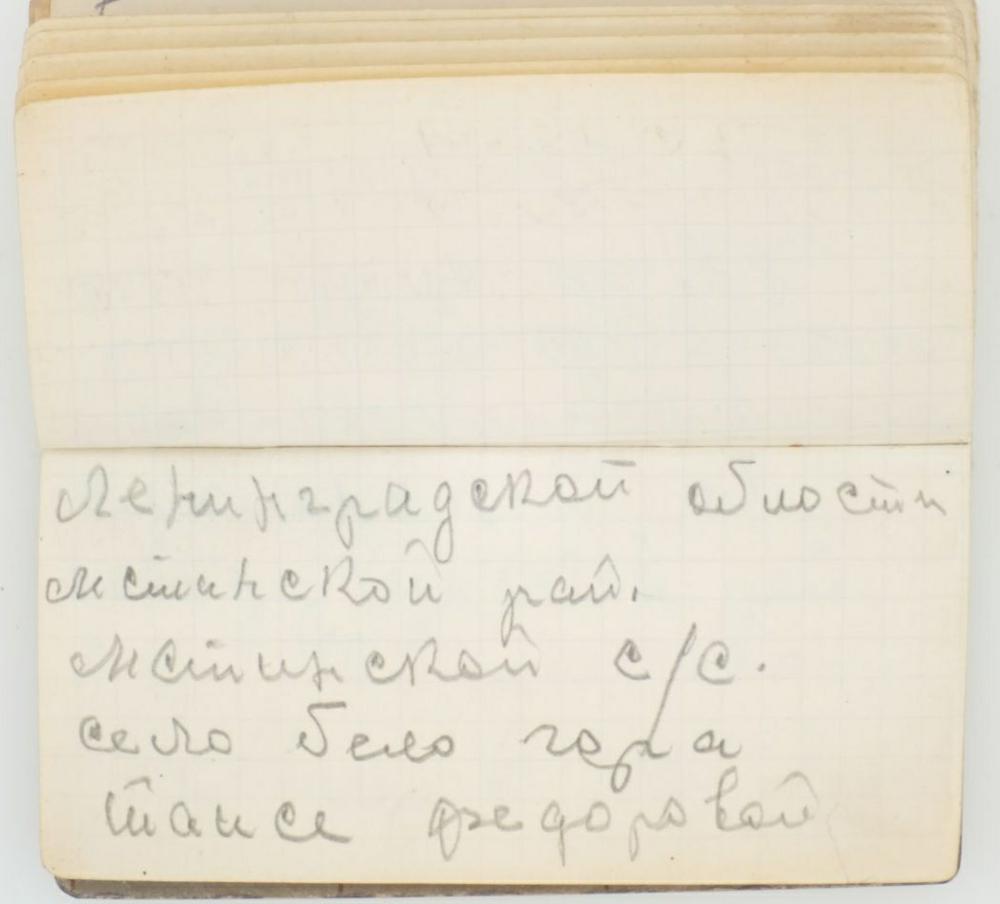 Ленинградской области
Мстинской рай.
Мстинской с/с.
село бело гора
таисе федоровой